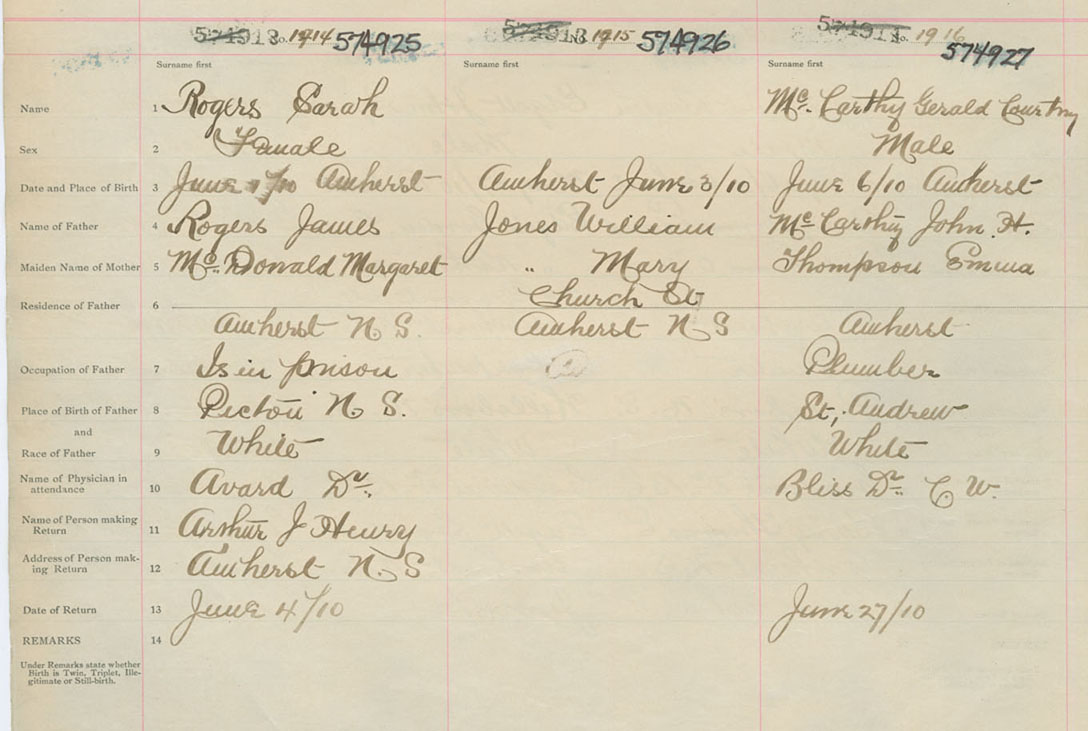 No. 1914 574925 No. 1915 574926 No. 1916 574927
Surname first Surname first Surname first
Name 1 Rogers Sarah Mc. Carthy Gerald Courtny
Sex 2 Female Male
Date and Place of Birth 3 June 1/10 Amherst Amherst June 3/10 June 6/10 Amherst
Name of Father 4 Rogers James Jones William Mc Carthy John H.
Maiden Name of Mother 5 Mc. Donald Margaret " Mary Thompson Emma
Church St
Residence of Father 6
Amherst N S. Amherst N S Amherst
Occupation of Father 7 Is in prison Plumber
Place of Birth of Father 8 Pictou N S. St, Andrew
and
Race of Father 9 White White
Name of Physician in
attendance 10 Avard Dr. Bliss Dr. C W.
Name of Person making
Return 11 Arthur J Henry
Address of Person mak-
ing Return 12 Amherst N. S
Date of Return 13 June 4/10 June 27/10
REMARKS 14
Under Remarks state whether
Birth is Twin, Triplet, Ille-
gitimate or Still-birth.